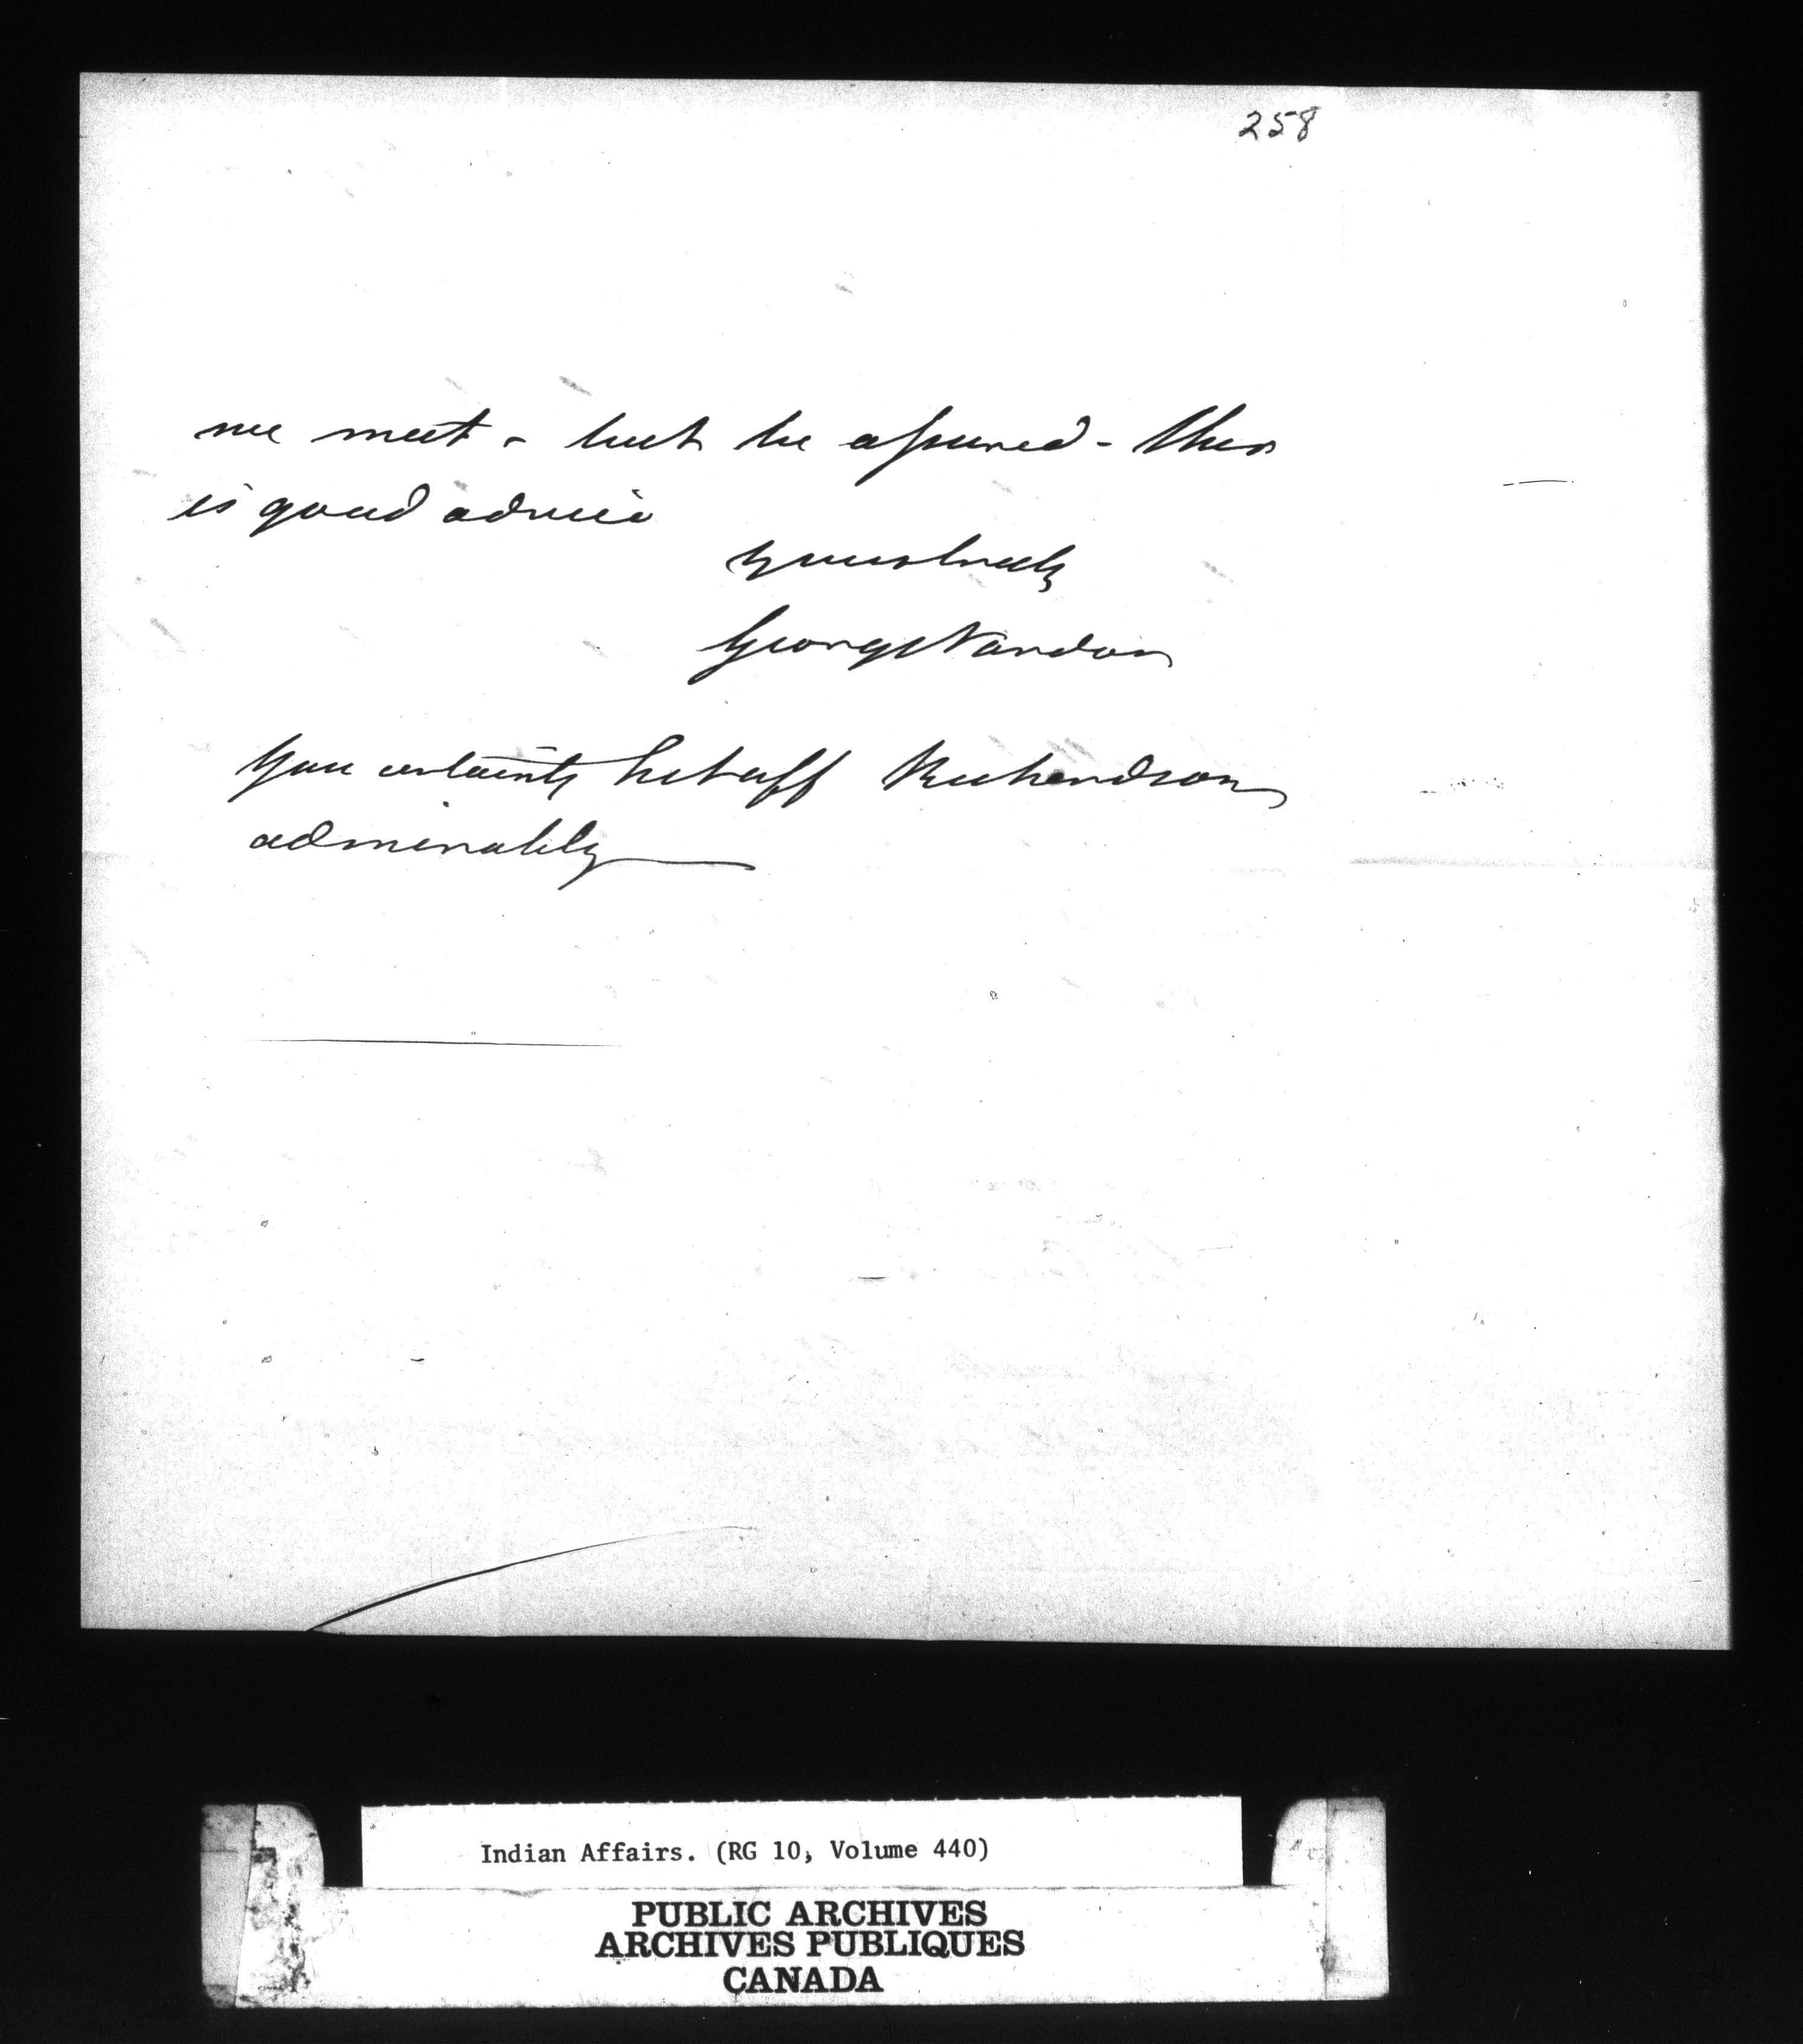 258
we meet - but be assured - this
is good advice
Yours truly
George Vardon
You certainly hit off Richardson
admirably
Indian Affairs. (RG 10, Volume 440)
PUBLIC ARCHIVES
ARCHIVES PUBLIQUES
CANADA